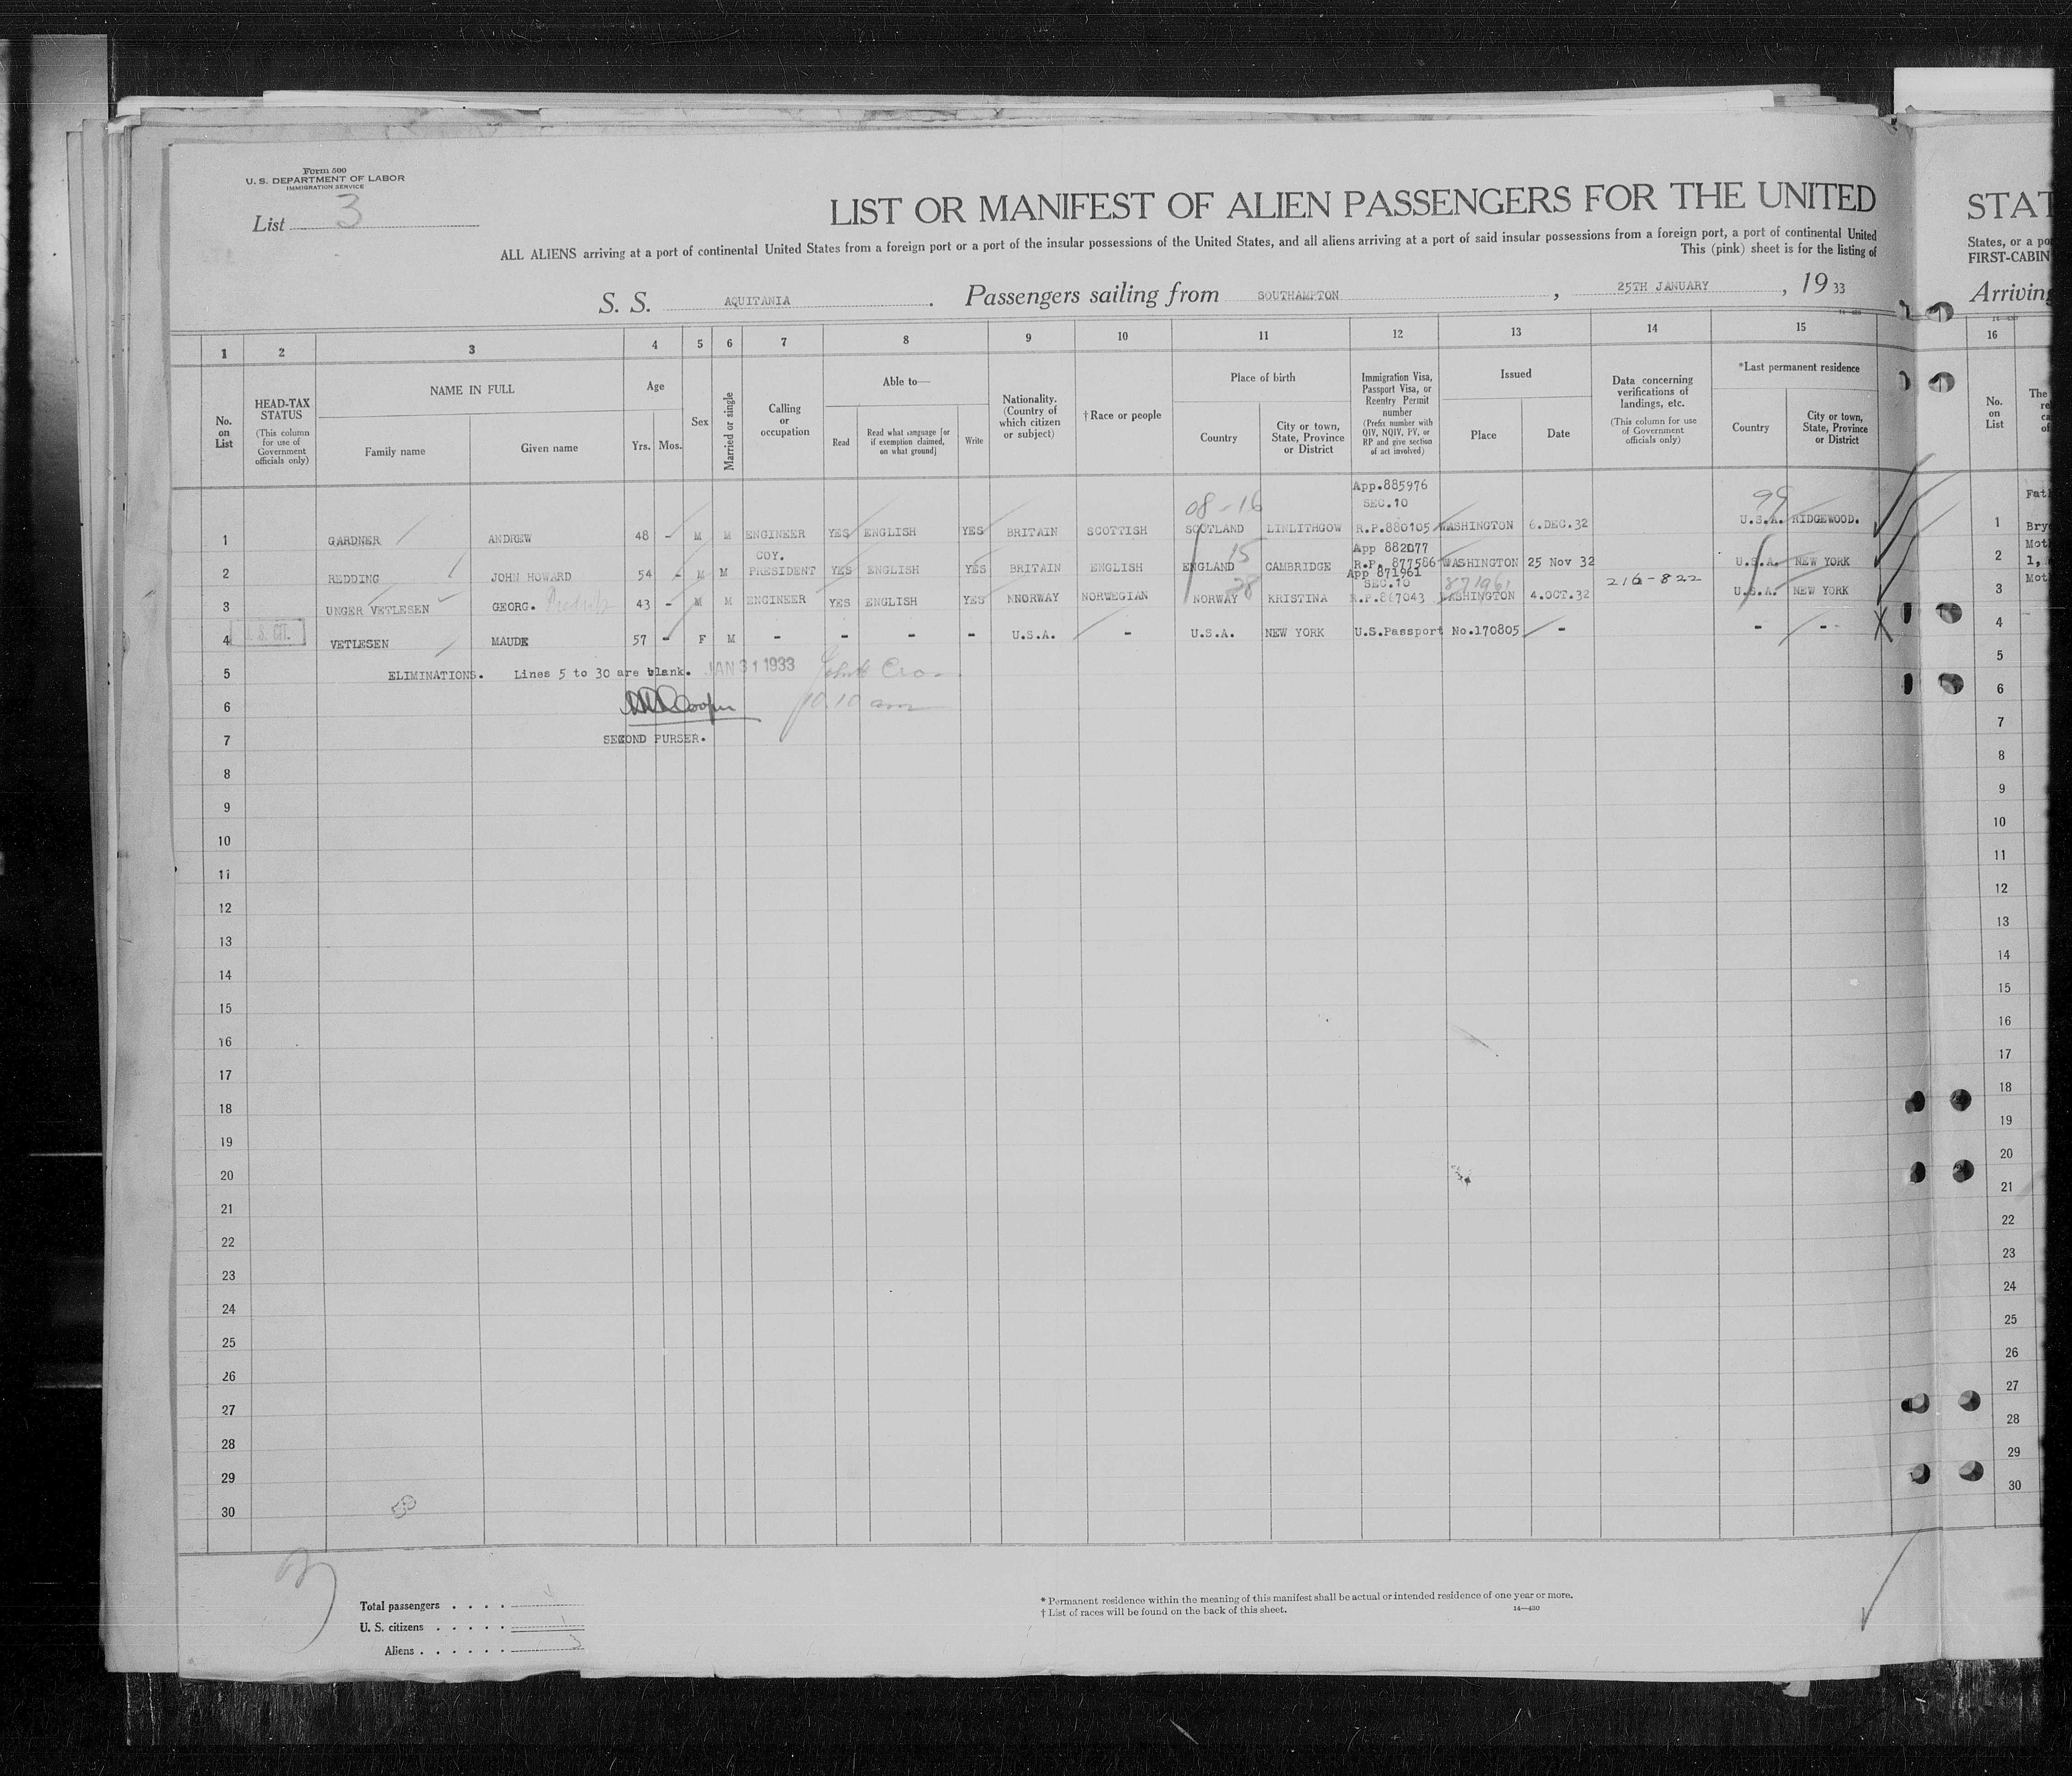 Form 500
U. S. DEPARTMENT OF LABOR
IMMIGRATION SERVICE
List 3
LIST OR MANIFEST OF ALIEN PASSENGERS FOR THE UNITED
STAT
ALL ALIENS arriving at a port of continental United States from a foreign port or a port of the insular possessions of the United States, and all aliens arriving at a port of said insular possessions from a foreign port, a port of continental United
States, or a po
This (pink) sheet is for the listing of
FIRST-CABIN
S. S. AQUITANIA. Passengers sailing from SOUTHAMPTON, 25TH JANUARY, 19 33
Arriving
1 2 3 4 5 6 7 8 9 10 11 12 13 14 15 16
No. on List
HEAD-TAX STATUS (This column for use of Government officials only)
NAME IN FULL
Family name
Given name
Age
Yrs. Mos.
Sex
Married or single
Calling or occupation
Able to—
Read
Read what language [or if exemption claimed, on what ground]
Write
Nationality. (Country of which citizen or subject)
† Race or people
Place of birth
Country
City or town, State, Province or District
Immigration Visa, Passport Visa, or Reentry Permit number (Prefix number with QIV, NQIV, PV, or RP and give section of act involved)
Issued
Place
Date
Data concerning verifications of landings, etc. (This column for use of Government officials only)
*Last permanent residence
Country
City or town, State, Province or District
No. on List
The
08-16 App.885976 SEC.10 99
1 GARDNER ANDREW 48 - M M ENGINEER YES ENGLISH YES BRITAIN SCOTTISH SCOTLAND LINLITHGOW R.P.880105 WASHINGTON 6.DEC.32 U.S.A. RIDGEWOOD. 1
COY. 15 App 882077
2 REDDING JOHN HOWARD 54 - M M PRESIDENT YES ENGLISH YES BRITAIN ENGLISH ENGLAND CAMBRIDGE R.P. 877586 WASHINGTON 25 Nov 32 U.S.A. NEW YORK 2
28 App 871961 SEC.10 871961
3 UNGER VETLESEN GEORG. 43 - M M ENGINEER YES ENGLISH YES NNORWAY NORWEGIAN NORWAY KRISTINA R.P.867043 WASHINGTON 4.OCT.32 216-822 U.S.A. NEW YORK 3
4 U. S. CIT. VETLESEN MAUDE 57 - F M - - - - U.S.A. - U.S.A. NEW YORK U.S.Passport No.170805 - - - X 4
5 ELIMINATIONS. Lines 5 to 30 are blank. JAN 31 1933 5
6 Cooper 10.10 am 6
7 SECOND PURSER. 7
8 8
9 9
10 10
11 11
12 12
13 13
14 14
15 15
16 16
17 17
18 18
19 19
20 20
21 21
22 22
23 23
24 24
25 25
26 26
27 27
28 28
29 29
30 30
3
Total passengers . . . .
U. S. citizens . . . . . 1
Aliens . . . . . . 3
* Permanent residence within the meaning of this manifest shall be actual or intended residence of one year or more.
† List of races will be found on the back of this sheet.
14—430